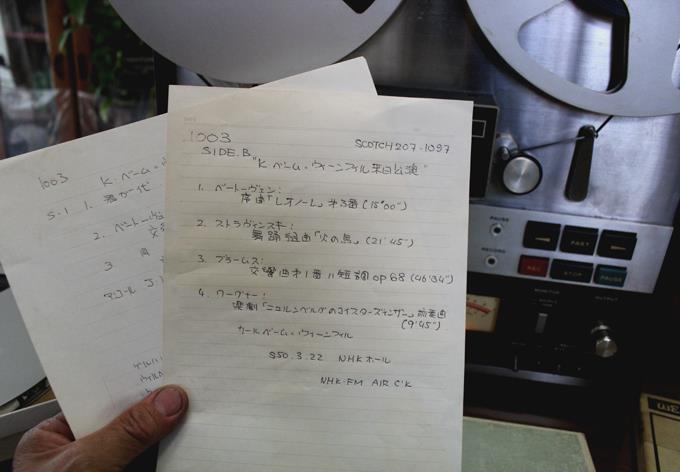 1003
SCOTCH 207-1097
SIDE.B
"K.ベーム・ウィーンフィル来日公演"
1. ベートーヴェン:
序曲「レオノーレ」才3番(15'00")
2. ストラヴィンスキー:
舞踊組曲「火の鳥」(21'45")
3. ブラームス:
交響曲才1番ハ短調op68(46'34")
4. ワーグナー:
楽劇「ニュルンベルグのマイスタージンガー」前奏曲
(9'45")
カールベーム・ウィーンフィル
S50.3.22 NHKホール
NHK-FM AIR C'K
1003
K.ベーム・
S.1 1. 君が代
2. ベートーヴ
交
3
PAUSE
RECORD
FAST
PAUSE
REC
STOP
MONITOR
OUTPUT
3m